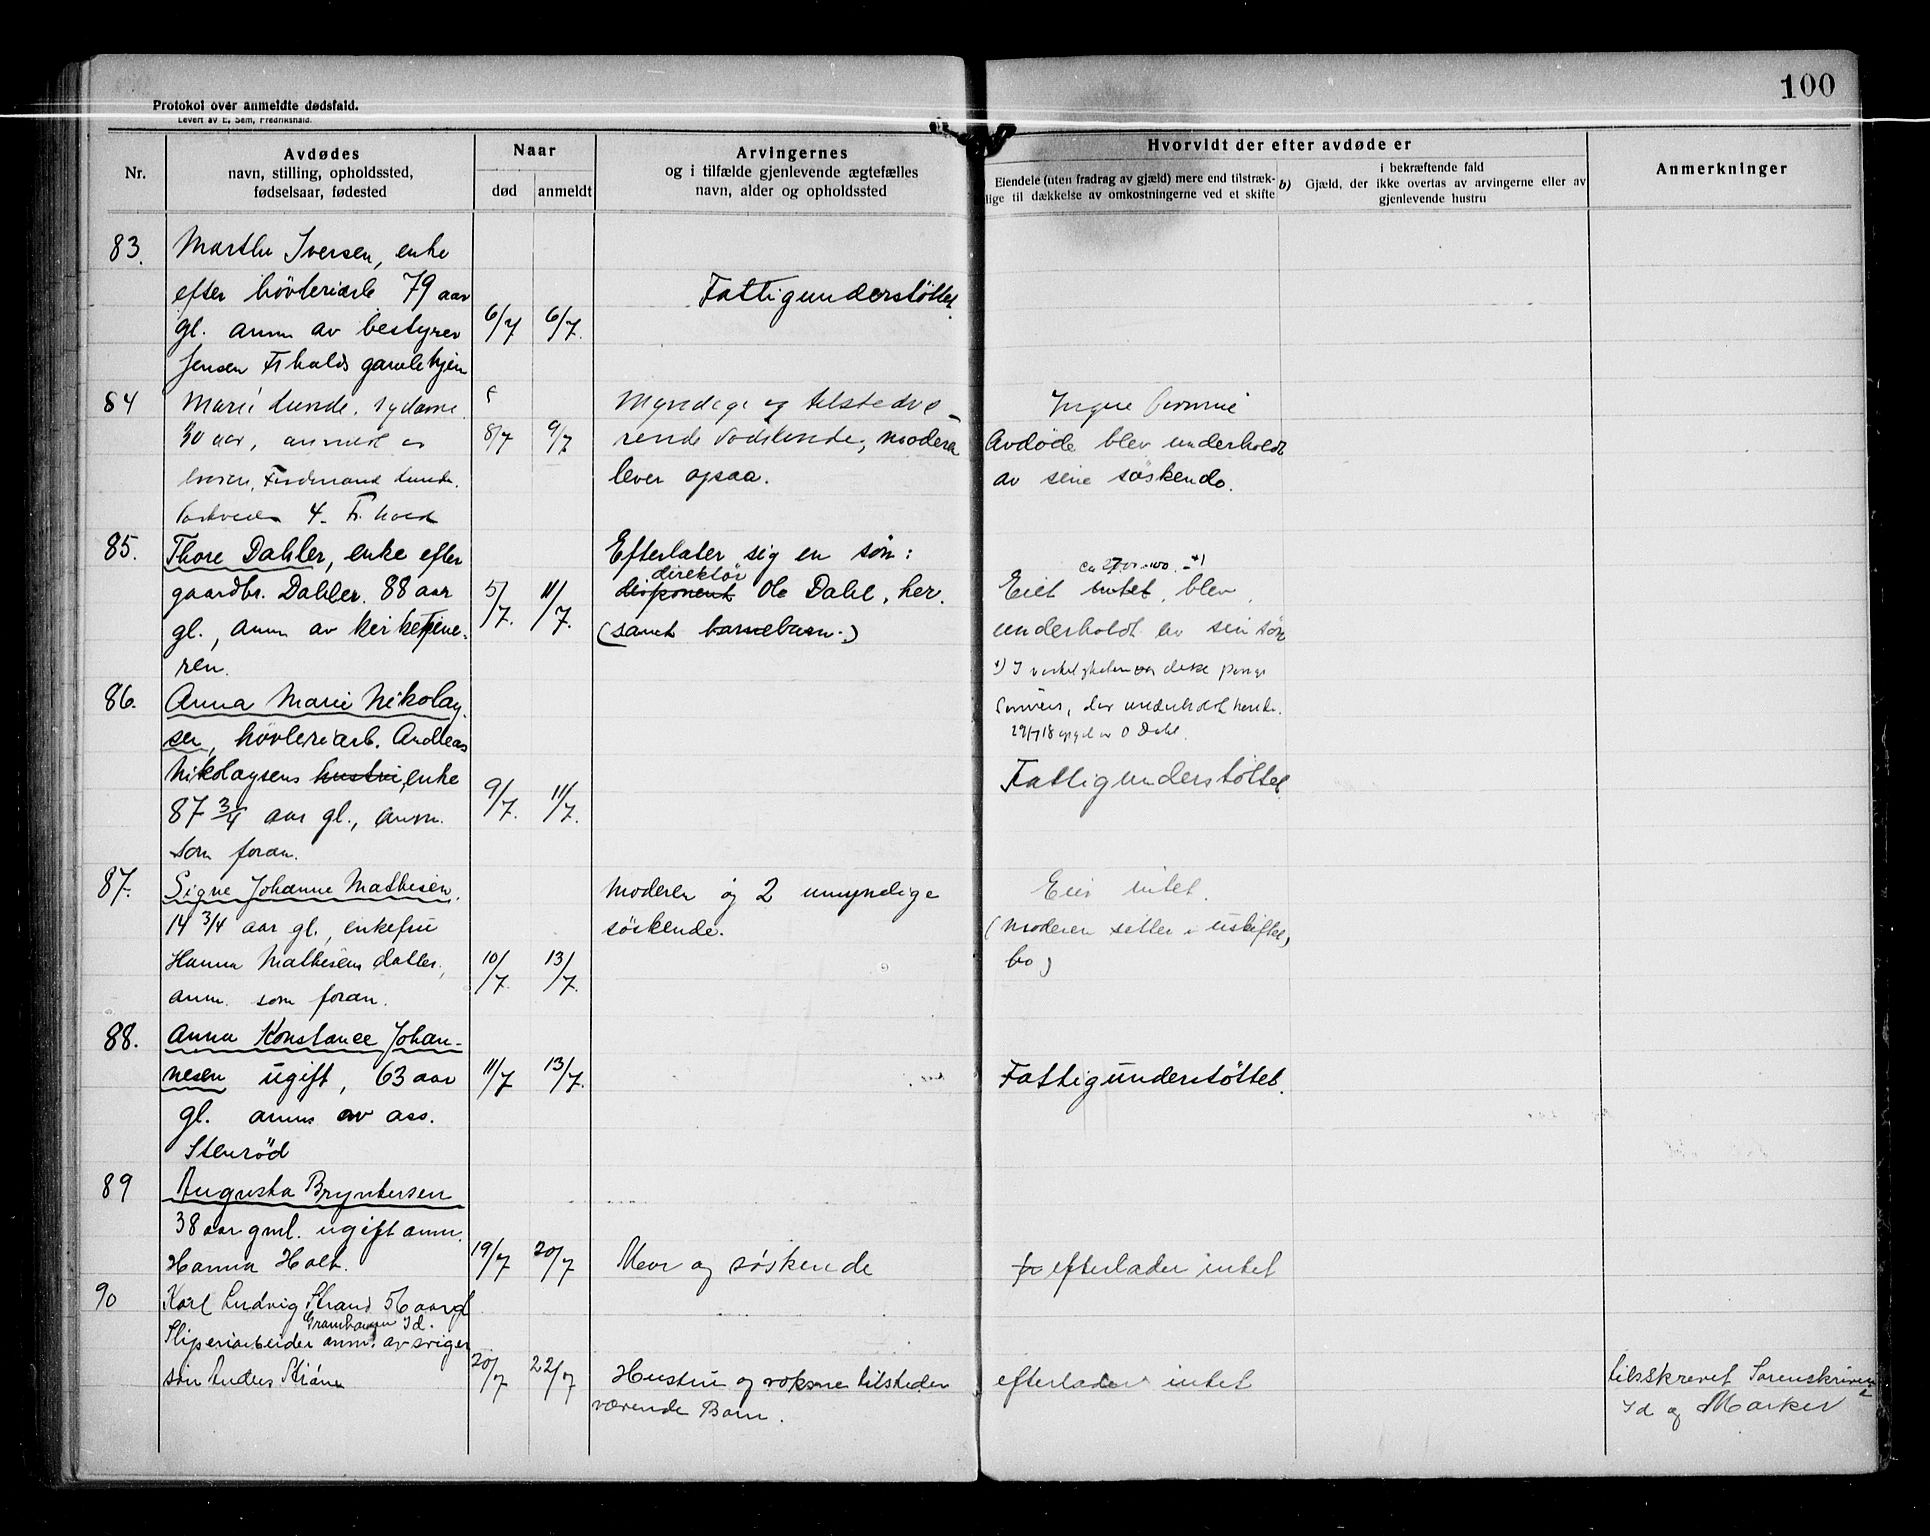 100
Protokol over anmeldte dødsfald.
Levert av E. Sem, Fredrikshald.
Nr.
Avdødes
navn, stilling, opholdssted,
fødselsaar, fødested
Naar
død
anmeldt
Arvingernes
og i tilfælde gjenlevende ægtefælles
navn, alder og opholdssted
Hvorvidt der efter avdøde er
Eiendele (uten fradrag av gjæld) mere end tilstræk-
lige til dækkelse av omkostningerne ved et skifte
b)
i bekræftende fald
Gjæld, der ikke overtas av arvingerne eller av
gjenlevende hustru
Anmerkninger
83.
Marthe Iversen, enke
efter høvleriarb 79 aar
gl. anm av bestyrer
Jensen Fr.halds gamlehjem
6/7
6/7.
Fattigunderstøttet.
84
Marie Lunde. sydame.
30 aar, anmeldt av
broren, Ferdinand Lunde.
4. Fr.hald
8/7
9/7
Myndige og tilstedvæ-
rende sødskende, modern
lever ogsaa.
Ingen formue
Avdøde blev underholdt
av sine søskende.
85.
Thore Dahler, enke efter
gaardbr. Dahler. 88 aar
gl., anm av kirketjene-
ren.
5/7.
11/7.
Efterlater sig en søn:
direktør
disponent Ole Dahl, her.
(samt barnebarn.)
+)
Eiet intet, blev
underholdt av sin søn
+) I virkeligheten disse penge
der underholdt hende.
29/7 18 av O Dahl.
86.
Anna Marie Nikolay-
sen, høvleriarb. Andreas
Nikolaysens hustru, enke
87 3/4 aar gl., anm.
som foran.
9/7.
11/7.
Fattigunderstøttet
87.
Signe Johanne Mathisen.
14 3/4 aar gl., enkefru
Hanna Mathisens datter,
anm. som foran.
10/7.
13/7.
Moderen og 2 umyndige
søskende.
Eier intet.
(Moderen sitter i uskiftet
bo)
88.
Anna Konstance Johan-
nesen ugift, 63 aar
gl. anm av ass.
Stenrød
11/7
13/7.
Fattigunderstøttet.
89
Augusta Bryntesen
38 aar gml. ugift anm.
Hanna Holt.
19/7
20/7
Mor og søskende
efterlader intet
90
Karl Ludvig Strand 56 aar gl
Id.
Sliperiarbeider anm. av sviger
søn Anders Strøm
20/7
22/7
Hustru og voksne tilsteder
værende Barn.
efterlader intet
tilskrevet Sorenskriveren
Id og Marker